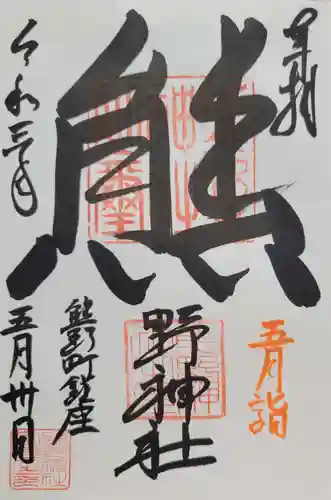 奉拝
熊
野神社
五月詣
熊野町鎮座
令和三年
五月卅日